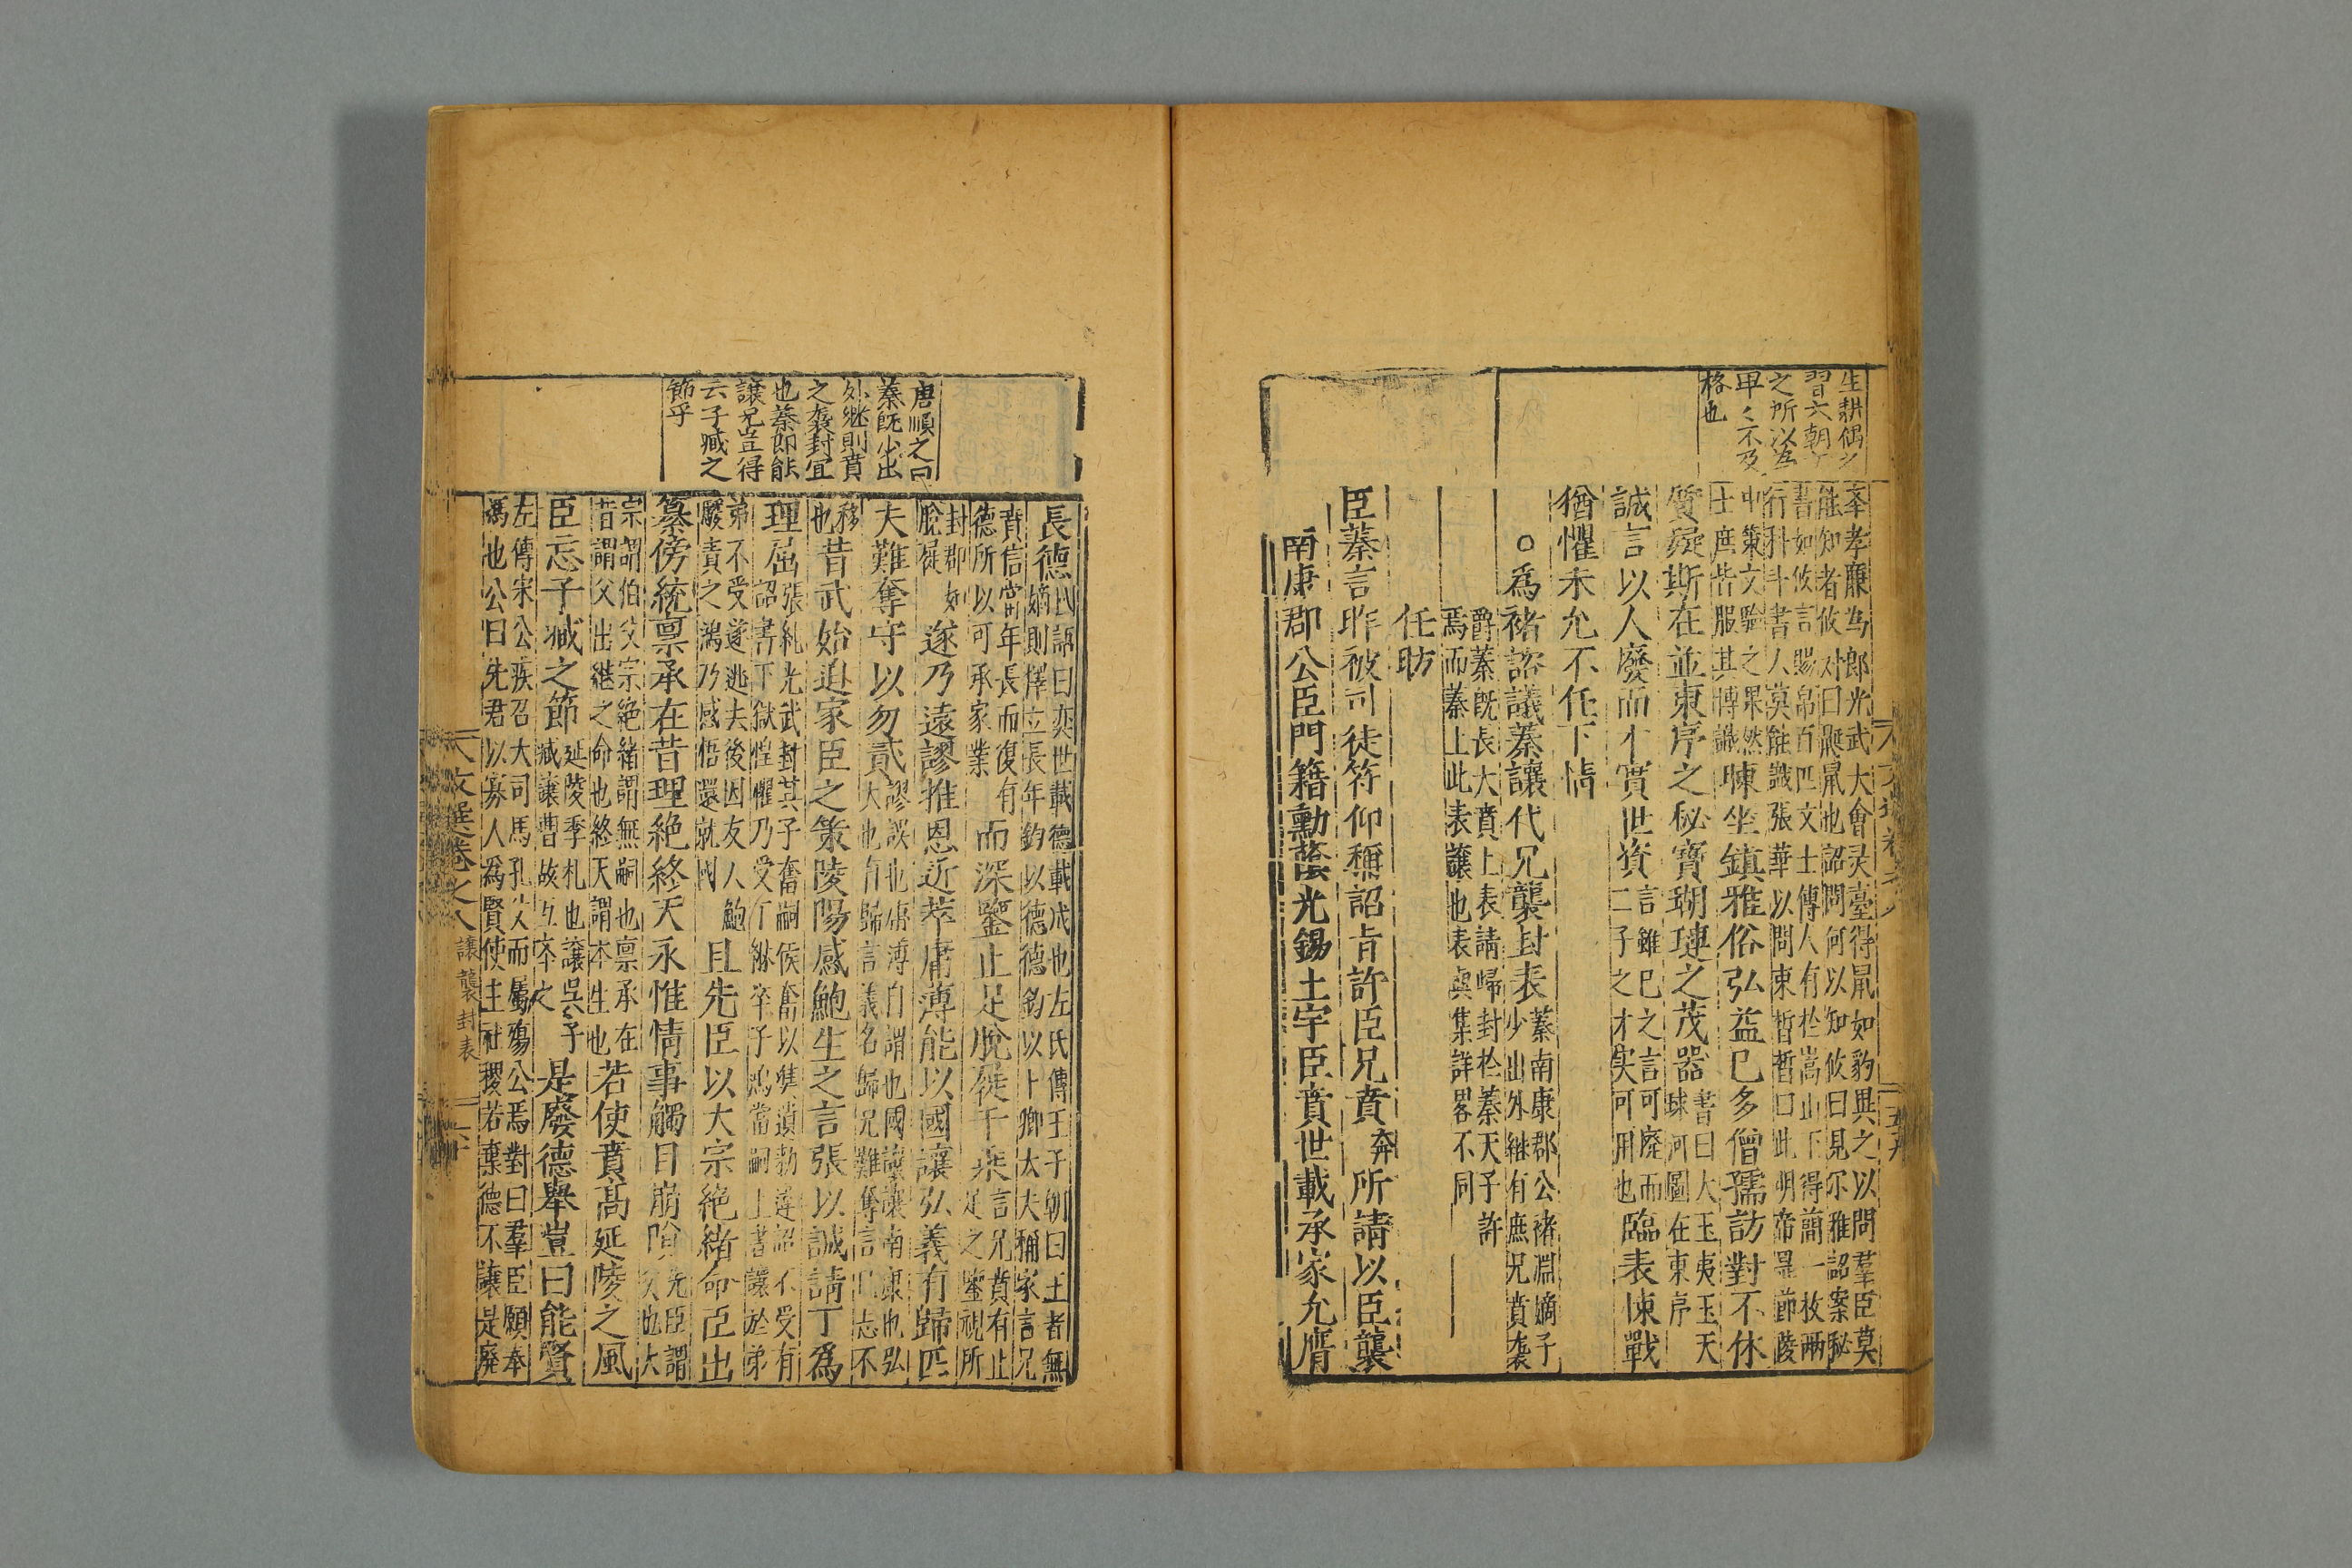 生耕偶之
習六朝
之所以為
卑卑不及
格也
孝孝廉为郎光武大會灵臺得鼠如豹異之以問羣臣莫
能知者攸对曰鼮鼠也詔問何以知攸曰見尔雅詔案秘
書如攸言賜帛百匹文士傳人有於嵩山下得簡一枚兩
行科斗書人莫能識張華以問東皙皙曰此明帝显節陵
中策文驗之果然
士庶皆服其博識
暕坐鎮雅俗弘益已多僧孺訪對不休
質疑斯在並東序之秘寶瑚璉之茂器
書曰大玉夷玉天
球河圖在東序
誠言以人廢而才實世資
言雖已之言可廢而
二子之才実可用也
臨表悚戰
猶懼未允不任下情
○為褚諮議蓁讓代兄襲封表
蓁南康郡公褚淵嫡子
少出外継有庶兄賁袭
爵蓁既长大賁上表請歸封於蓁天子許
焉而蓁上此表讓也表與集詳畧不同
任昉
臣蓁言昨被司徒符仰稱詔旨許臣兄賁
奔
所請以臣襲
南康郡公臣門籍勳蔭光錫土宇臣賁世載承家允膺
唐順之曰
蓁既少出
外継則賁
之袭封宜
也蓁即能
讓兄豈得
云子臧之
節乎
長德
国語曰奕世載德載成也左氏傳王子朝曰王者無
嫡則擇立長年鈞以德德鈞以卜卿太夫稱家言兄
賁信當年長而復有
德所以可承家業
而深鑒止足脫屣千乘
言兄賁有止
足之鑒視所
封郡如
脫屣
遂乃遠謬推恩近萃庸薄能以國讓弘義有歸匹
夫難奪守以勿貳
謬誤也庸薄自謂也國讓讓南康也弘
大也有歸言義名歸兄難奪言己志不
移
也
昔武始迫家臣之策陵陽感鮑生之言張以誠請丁為
理屈
張純光武封其子奮嗣侯奮以兄遺勅違詔不受有
詔書下獄惶懼乃受丁綝卒子鴻當嗣上書讓於弟
弟不受遂逃去後因友人鮑
駿責之鴻乃感悟還就國
且先臣以大宗絶緒命臣出
纂傍統禀承在昔理絶終天永惟情事觸目崩隕
先臣謂
父也大
宗謂伯父宗絶緒謂無嗣也禀承在
昔謂父出継之命也終天謂本生也
若使賁髙延陵之風
臣忘子臧之節
延陵季札也讓吳子
臧讓曹故互本之
是廢德舉豈曰能賢
左傳宋公疾召大司馬孔父而屬殤公焉對曰羣臣願奉
馮也公曰先君以寡人為賢使主社稷若棄德不讓是廢
文選卷之八 讓襲封表